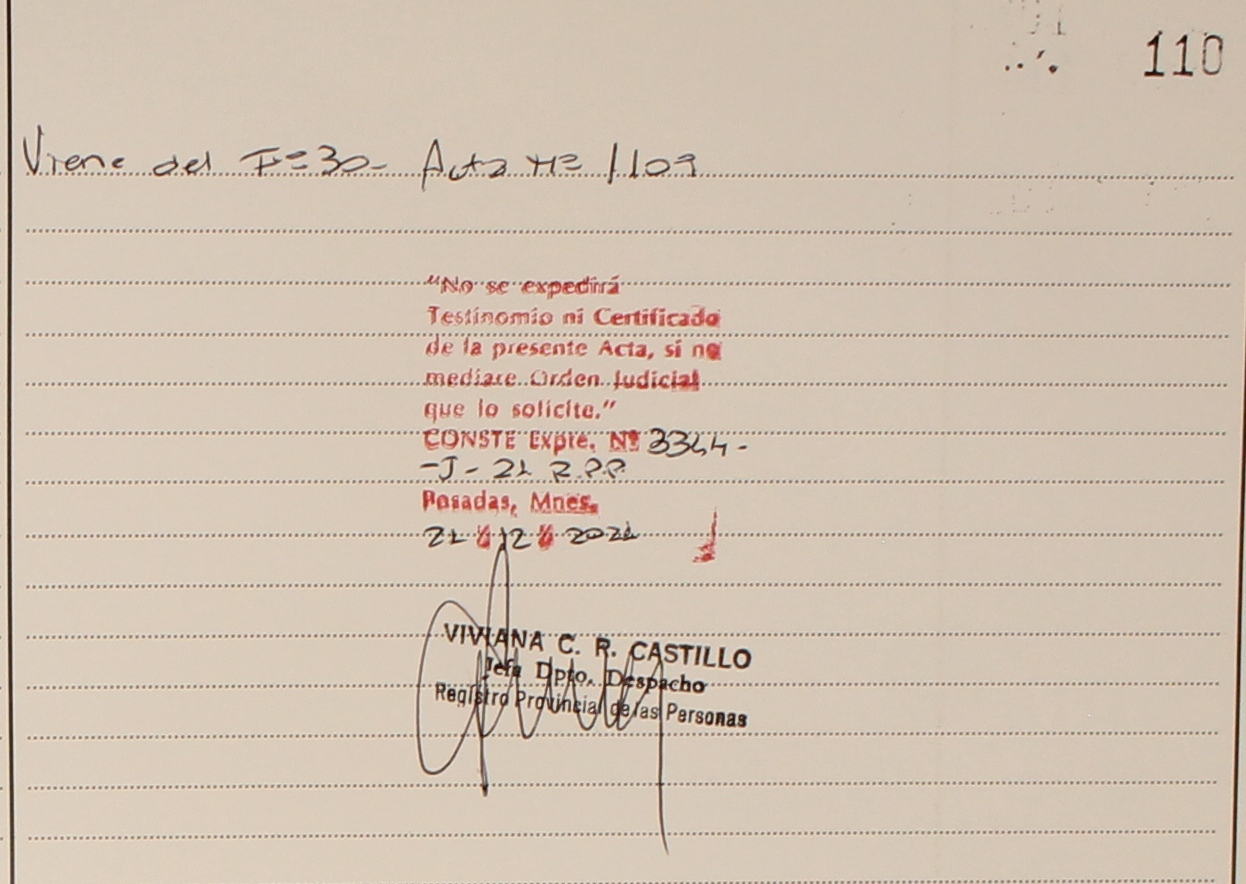 110
Viene del Fº 30- Acta Nº 1109
"No se expedirá
Testinomio ni Certificado
de la presente Acta, si no
mediare Orden Judicial
que lo solicite."
CONSTE Expte. Nº 3344-
-J- 21 R.P.P
Posadas, Mnes.
21 12 2021
VIVIANA C. R. CASTILLO
Jefa Dpto. Despacho
Registro Provincial de las Personas